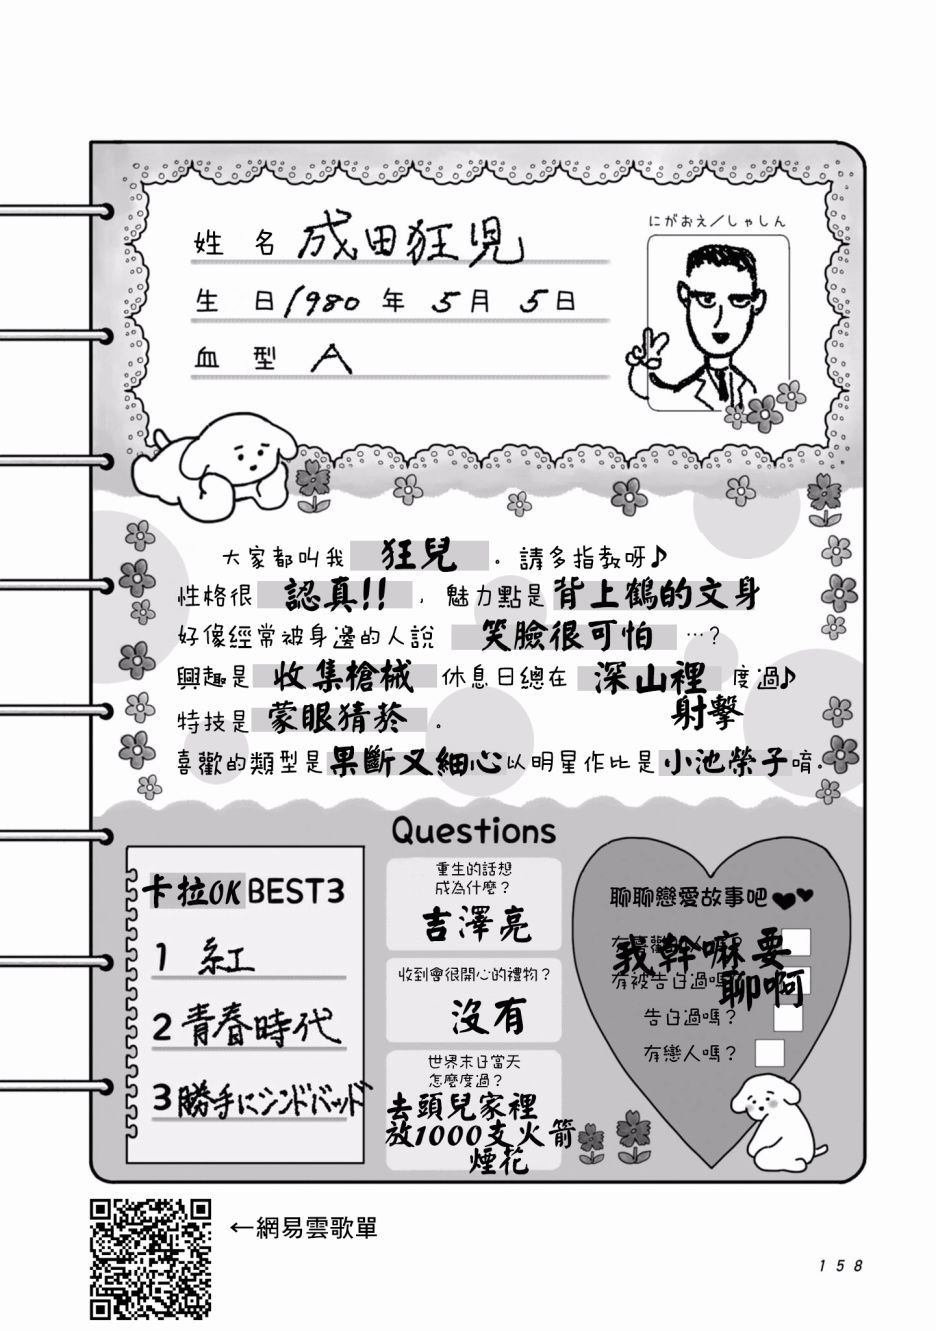 にがおえ/しゃしん
姓 名 成田狂児
生 日 1980 年 5月 5日
血 型 A
大家都叫我 狂兒 。請多指教呀♪
性格很 認真!! ，魅力點是背上鶴的文身
好像經常被身邊的人說 笑臉很可怕 …？
興趣是 收集槍械 休息日總在 深山裡 度過♪
射擊
特技是 蒙眼猜菸 。
喜歡的類型是果斷又細心以明星作比是小池榮子唷。
Questions
卡拉OK BEST3
1 紅
2 青春時代
3 勝手にシンドバッド
重生的話想
成為什麼？
吉澤亮
收到會很開心的禮物？
沒有
世界末日當天
怎麼度過？
去頭兒家裡
放1000支火箭
煙花
聊聊戀愛故事吧
我幹嘛要
聊啊
有被告白過嗎
告白過嗎？
有戀人嗎？
←網易雲歌單
158